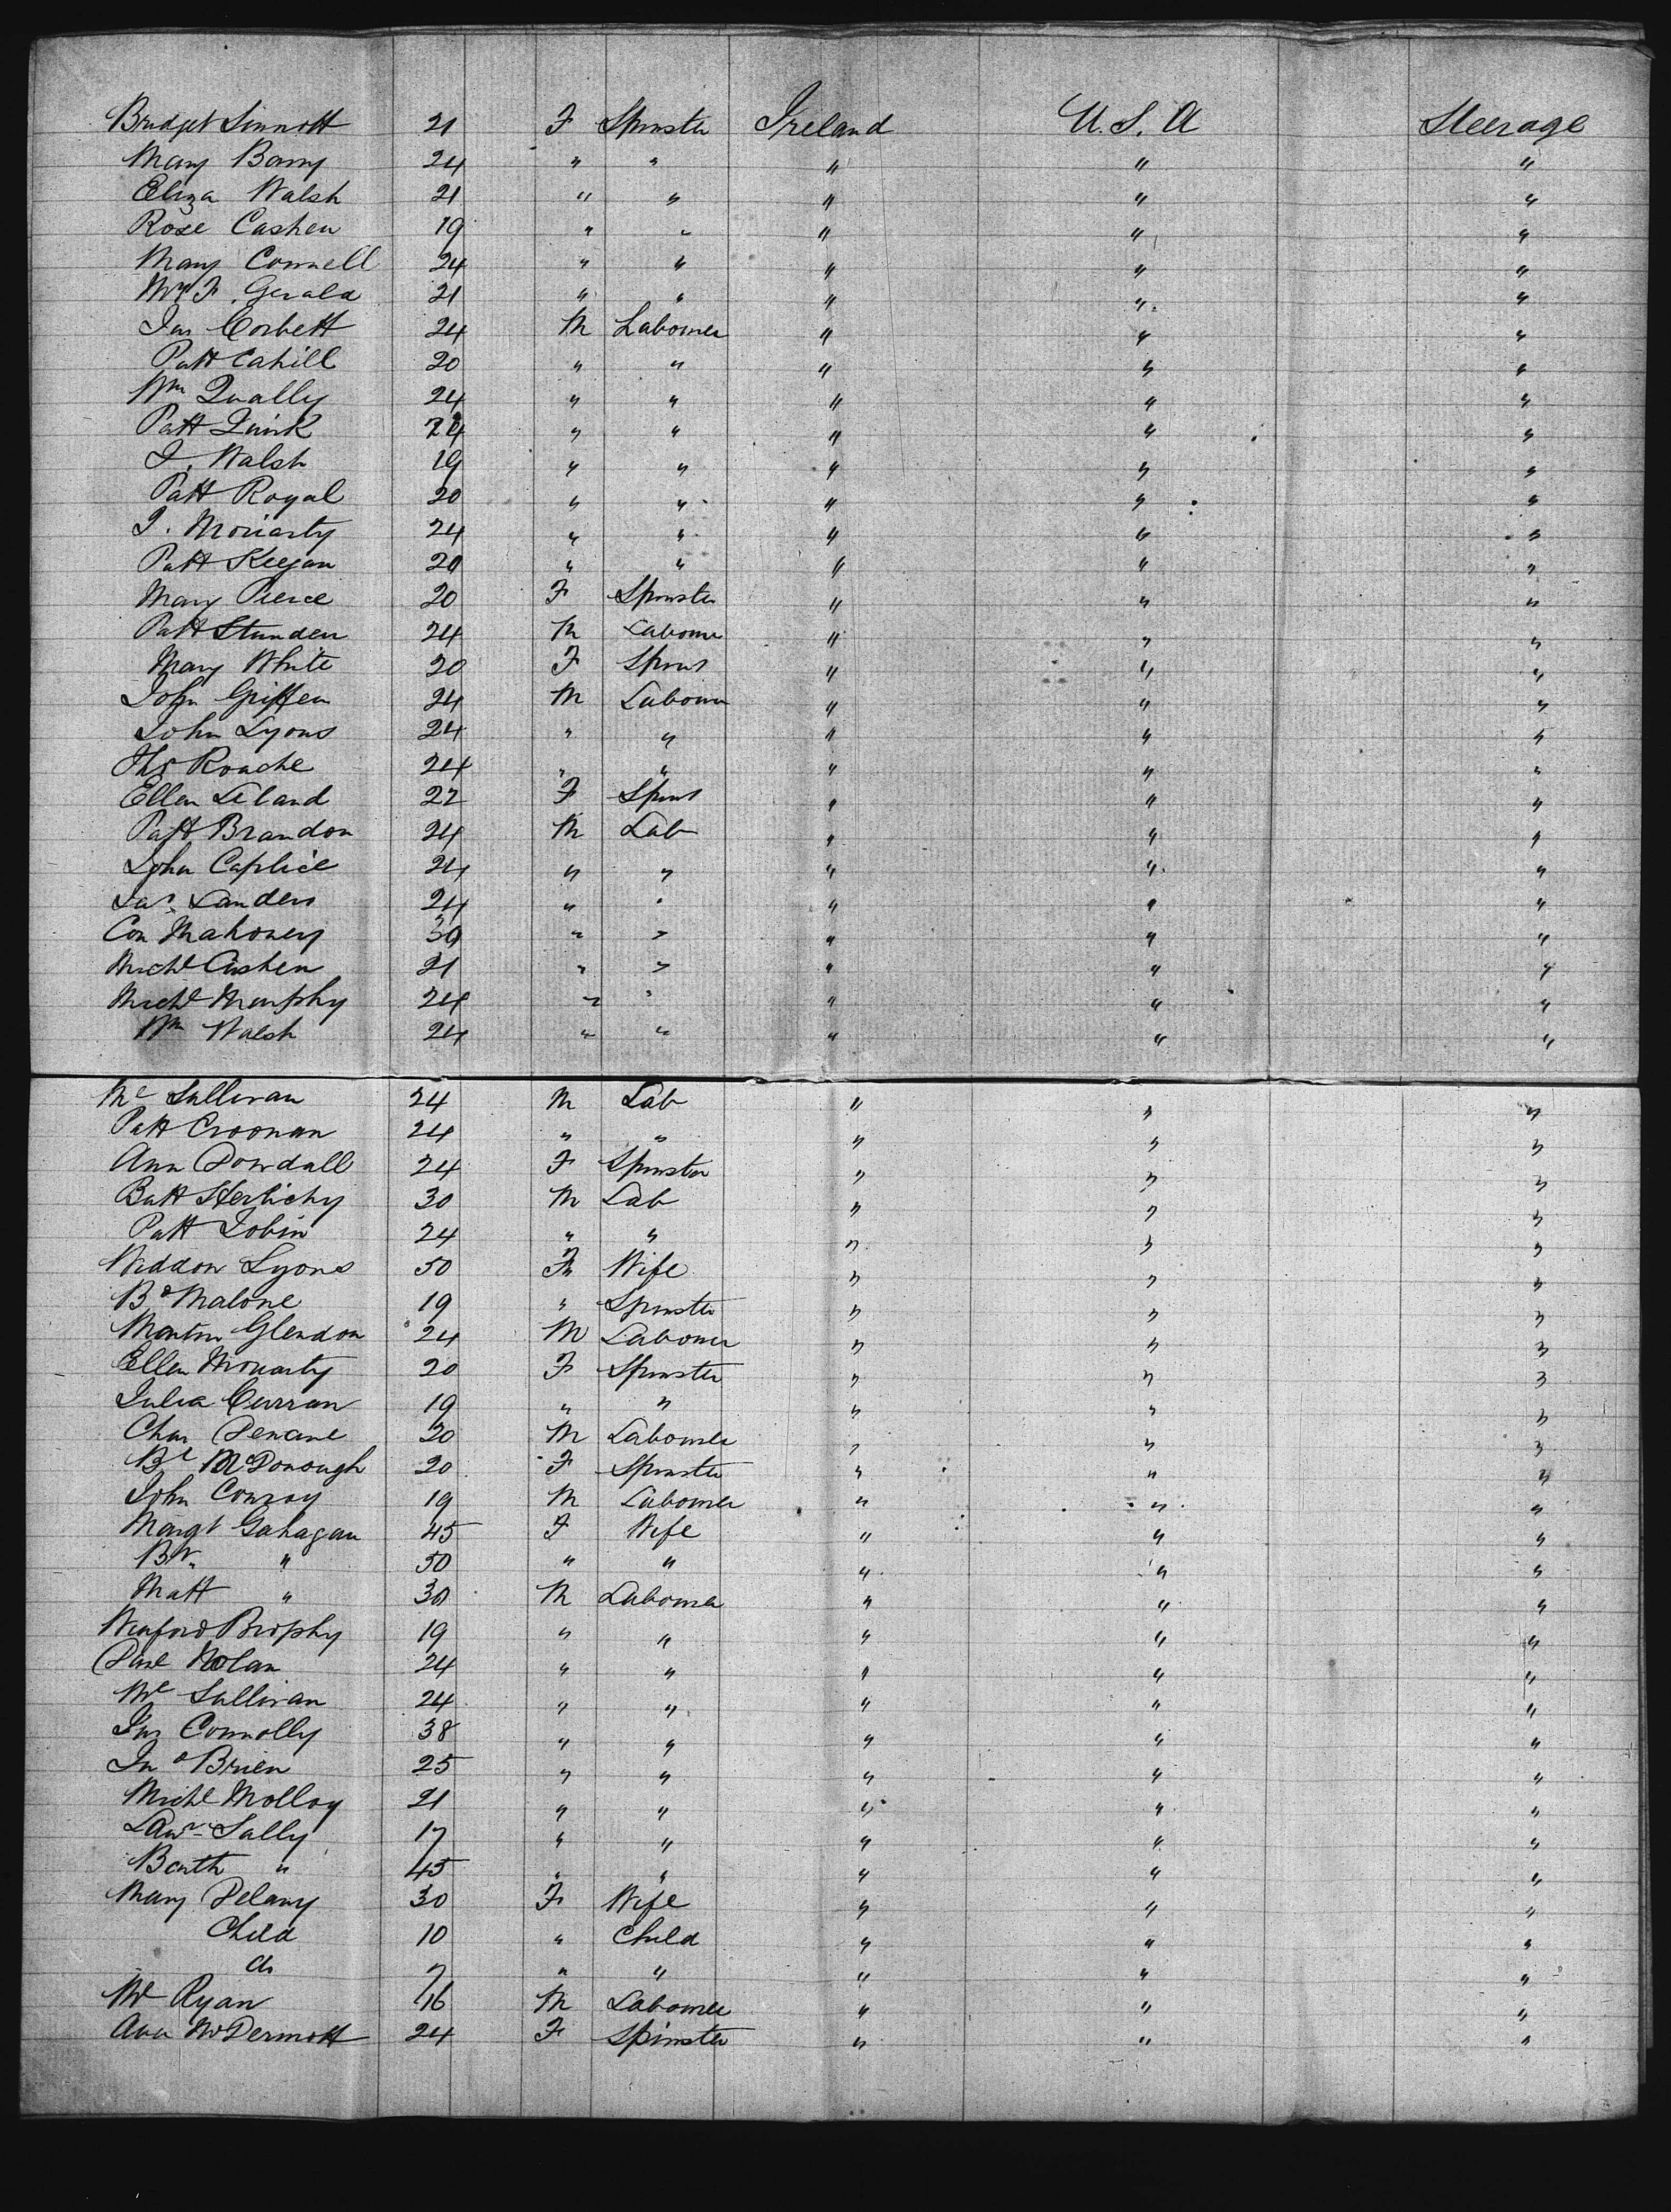 Bridget Sinnott 21 F Spinster Ireland U.S.A Steerage
Mary Barry 24 " " " " "
Eliza Walsh 21 " " " " "
Rose Cashen 19 " " " " "
Mary Connell 24 " " " " "
F. Gerald 21 " " " " "
Jas Corbett 24 M Labourer " " "
Patt Cahill 20 " " " " "
Wm Qually 24 " " " " "
Patt 24 " " " " "
J. Walsh 19 " " " " "
Patt Royal 20 " " " " "
J. Moriarty 24 " " " " "
Patt Keegan 20 " " " " "
Mary Pierce 20 F Spinster " " "
Patt Stunden 24 M Labour " " "
Mary White 20 F Spins " " "
John Griffen 24 M Labour " " "
John Lyons 24 " " " " "
Ths Roache 24 " " " " "
Ellen Leland 22 F Spins " " "
Patt Brandon 24 M Lab " " "
John Caplice 24 " " " " "
Jas Landers 24 " " " " "
Con Mahoney 30 " " " " "
Michl Cashen 21 " " " " "
Michl Murphy 24 " " " " "
Wm Walsh 24 " " " " "
Ml Sullivan 24 M Lab " " "
Patt Croonan 24 " " " " "
Ann Dowdall 24 F Spinster " " "
Batt Herlichy 30 M Lab " " "
Patt Tobin 24 " " " " "
Widdow Lyons 50 F Wife " " "
Bd Malone 19 " Spinster " " "
Martin Glendon 24 M Labourer " " "
Ellen Moriarty 20 F Spinster " " "
Julia Curran 19 " " " " "
Chas Denane 20 M Labourer " " "
Bt McDonough 20 F Spinster " " "
John Conroy 19 M Labourer " " "
Margt Gahagan 45 F Wife " " "
" 50 " " " " "
Matt " 30 M Labourer " " "
Winford Brophy 19 " " " " "
Nolan 24 " " " " "
Ml Sullivan 24 " " " " "
Jas Connolly 38 " " " " "
Jn O Brien 25 " " " " "
Michl Molloy 21 " " " " "
Lawr Lally 17 " " " " "
Barth " 45 " " " " "
Mary Delany 30 F Wife " " "
Child 10 " Child " " "
do 7 " " " " "
Ml Ryan 16 M Labourer " " "
Ann McDermott 24 F Spinster " " "